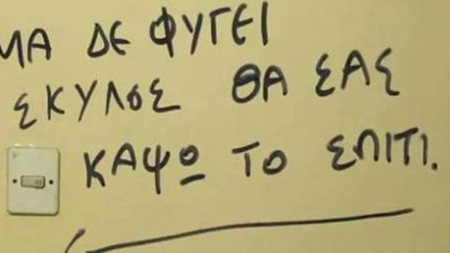 ΜΑ ΔΕ ΦΥΓΕΙ
ΣΚΥΛΟΣ ΘΑ ΣΑΣ
ΚΑΨΩ ΤΟ ΣΠΙΤΙ.